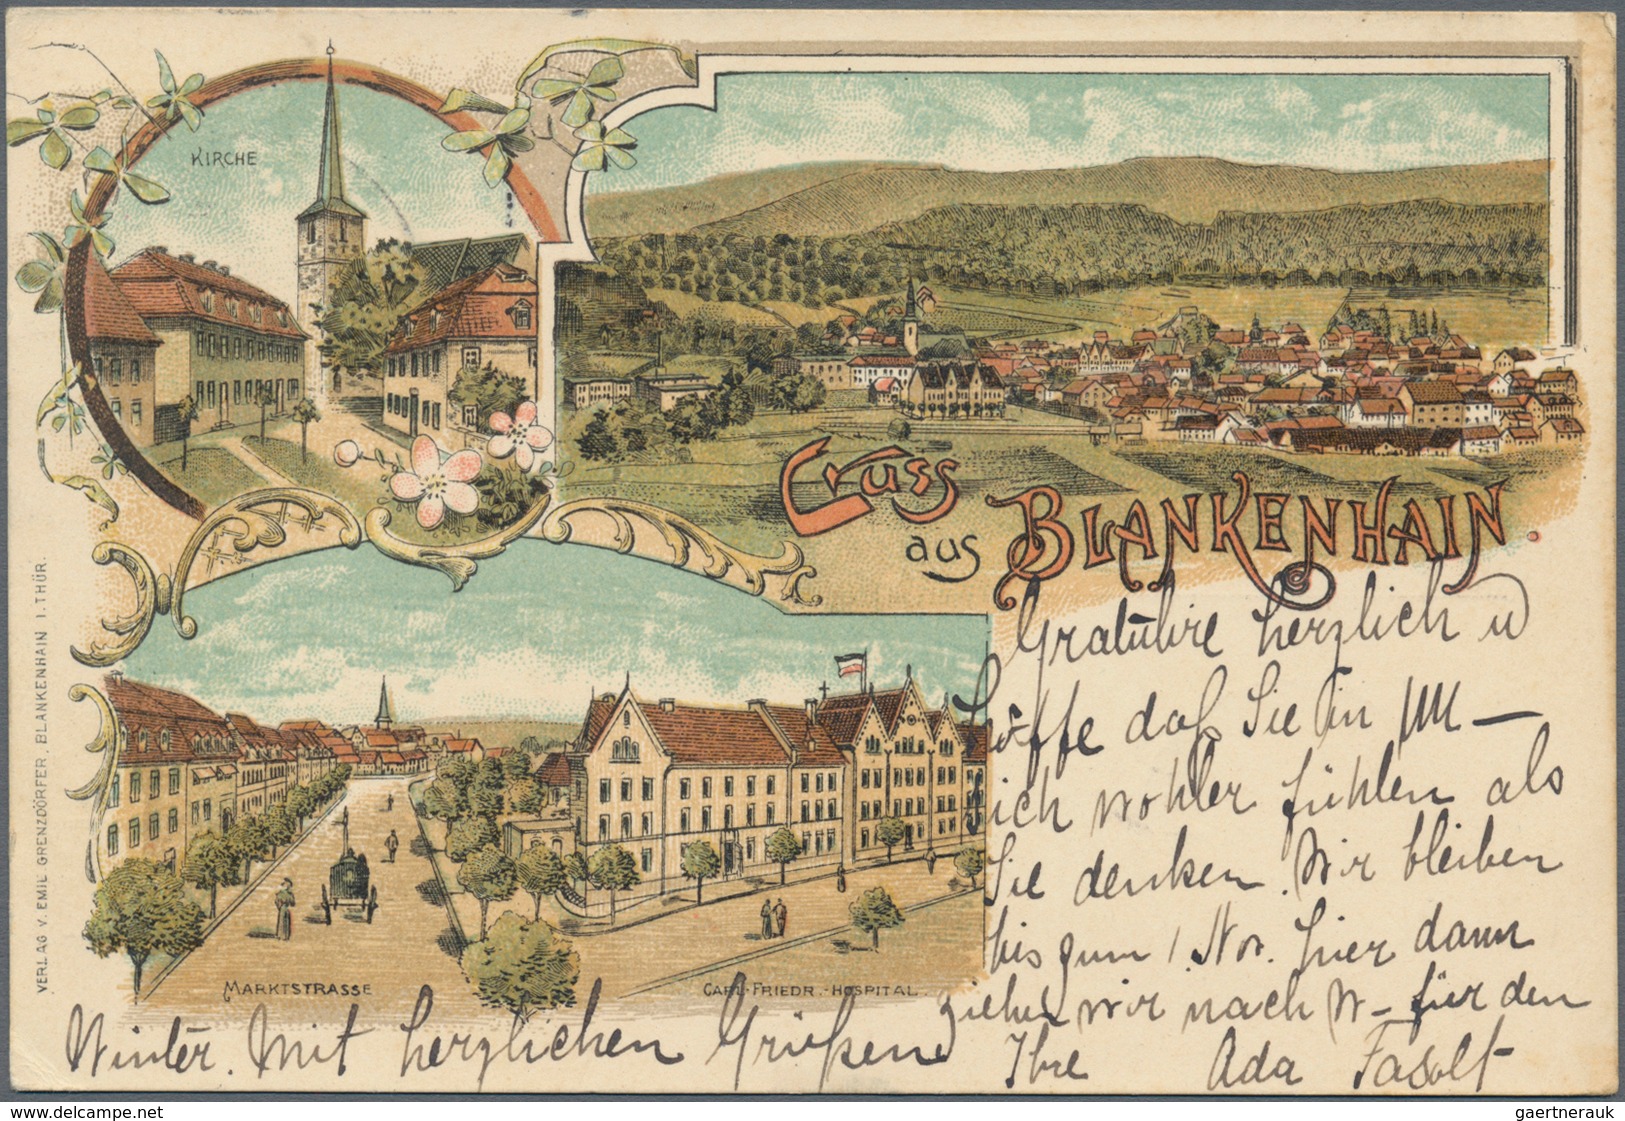 KIRCHE
Gruss
aus BLANKENHAIN.
MARKTSTRASSE
CARL-FRIEDR.-HOSPITAL
VERLAG V. EMIL GRENZDÖRFER, BLANKENHAIN I. THÜR.
Gratulire herzlich u
hoffe daß Sie in
sich wohler fühlen als
Sie denken. Wir bleiben
bis zum 1. Nov. hier dann
ziehen wir nach W– für den
Winter. Mit herzlichen Grüßen
Ihre Ada Fasolt
delcampe.net
gaertnerauk